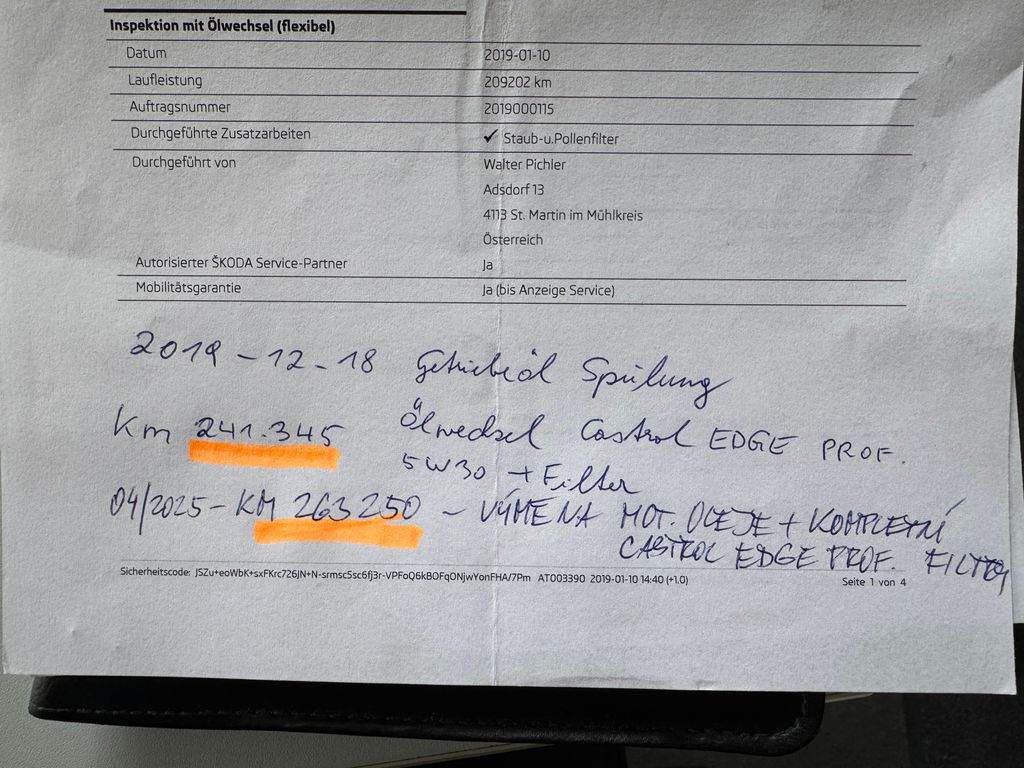 Inspektion mit Ölwechsel (flexibel)
Datum 2019-01-10
Laufleistung 209202 km
Auftragsnummer 2019000115
Durchgeführte Zusatzarbeiten ✓ Staub-u.Pollenfilter
Durchgeführt von Walter Pichler
Adsdorf 13
4113 St. Martin im Mühlkreis
Österreich
Autorisierter ŠKODA Service-Partner Ja
Mobilitätsgarantie Ja (bis Anzeige Service)
2019-12-18 Getriebeöl Spülung
Km 241.345 Ölwechsel Castrol EDGE PROF.
5W30 + Filter
04/2025 - KM 263 250 - VÝMĚNA MOT. OLEJE + KOMPLETNÍ
CASTROL EDGE PROF. FILTRY
Sicherheitscode: JSZu+eoWbK+sxFKrc726jN+N-srmsc5sc6fj3r-VPFoQ6kBOFqONjwYonFHA/7Pm AT003390 2019-01-10 14:40 (+1.0)
Seite 1 von 4